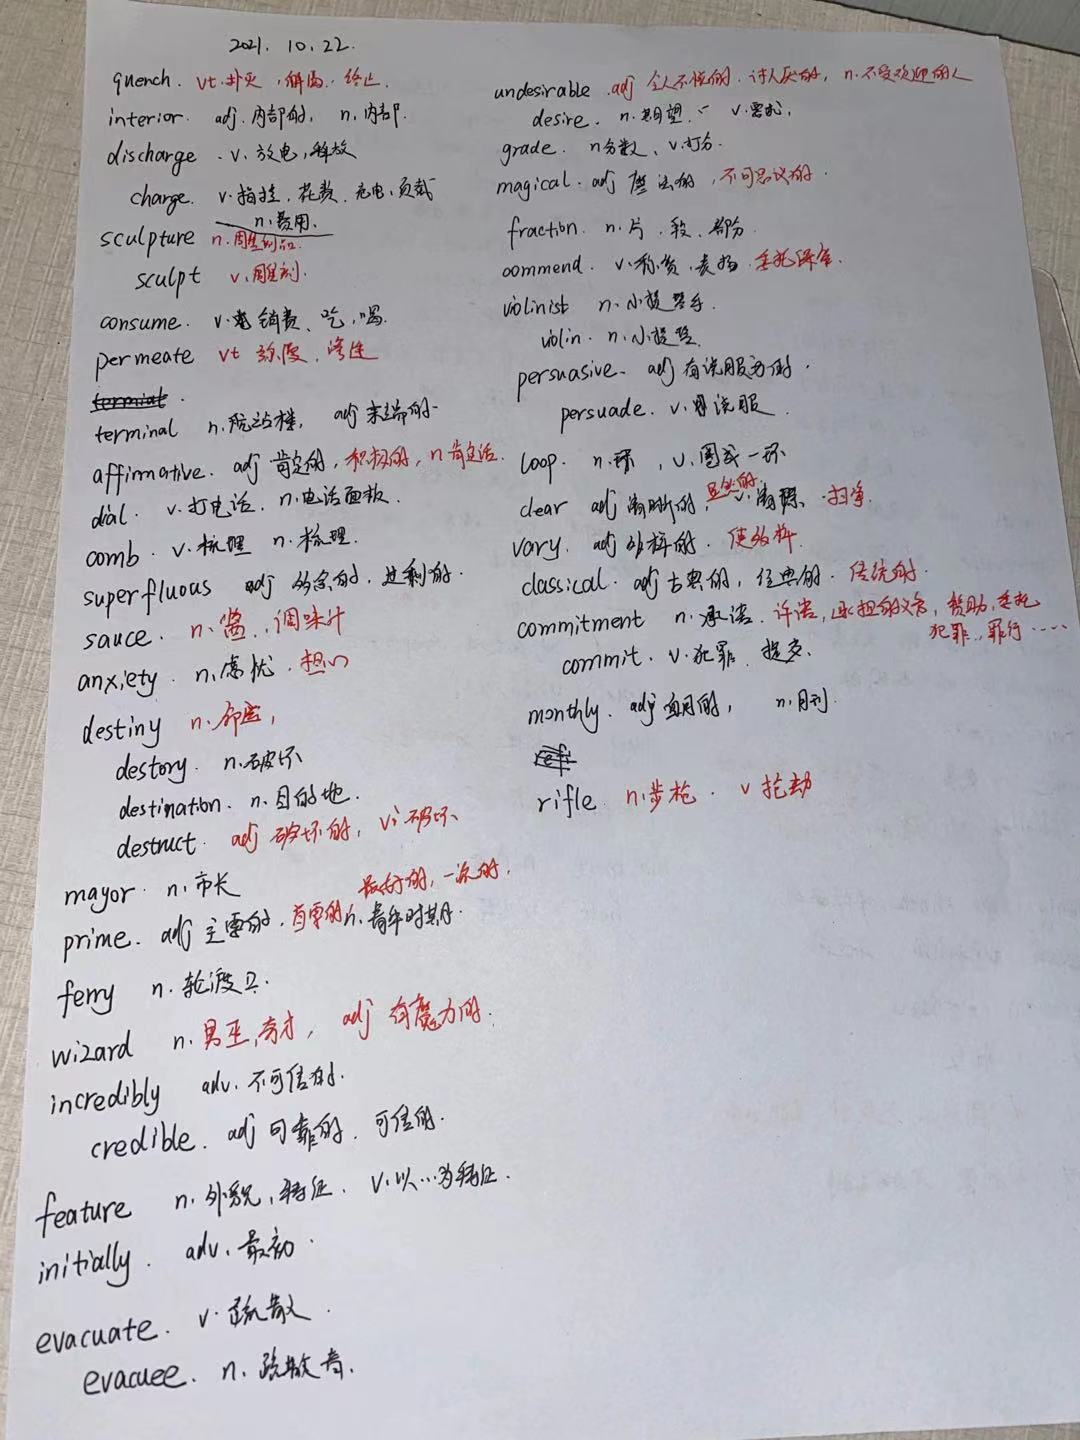 2021. 10. 22.
quench. vt. 扑灭, 解渴. 终止.
interior. adj. 内部的, n. 内部.
discharge. v. 放电, 释放
charge. v. 指控, 花费, 充电, 负载
n. 费用.
sculpture n. 雕刻品.
sculpt v. 雕刻.
consume. v. 销费、吃, 喝.
permeate vt 弥漫. 渗透
terminal n. 航站楼, adj 末端的
affirmative. adj 肯定的, 积极的, n 肯定话.
dial. v. 打电话. n. 电话面板.
comb. v. 梳理 n. 梳理.
superfluous adj 多余的. 过剩的.
sauce. n. 酱. 调味汁
anxiety. n. 虑忧. 担心
destiny n. 命运,
destory. n. 破坏
destination. n. 目的地.
destruct. adj 破坏的, vi 破坏
mayor. n. 市长
最好的, 一流的,
prime. adj 主要的, 首要的 n. 青年时期.
ferry n. 轮渡
wizard n. 男巫, 奇才, adj 有魔力的.
incredibly adv. 不可信的.
credible. adj 可靠的. 可信的.
feature n. 外貌, 特征. v. 以…为特征.
initially. adv. 最初.
evacuate. v. 疏散.
evacuee. n. 疏散者.
undesirable. adj 令人不悦的. 讨人厌的, n. 不受欢迎的人
desire. n. 期望. v. 需求,
grade. n 分数、v. 打分.
magical. adj 魔法的, 不可思议的.
fraction. n. 片. 段. 部分
commend. v. 称赞. 表扬. 委托保管.
violinist n. 小提琴手.
violin. n. 小提琴
persuasive. adj 有说服力的.
persuade. v. 说服.
loop. n. 环, v. 围成一环
显然的.
clear adj 清晰的, v. 清理. 扫净.
vary. adj 多样的. 使多样.
classical. adj 古典的, 经典的. 传统的.
commitment n. 承诺. 许诺, 承担的义务, 赞助, 委托
犯罪, 罪行……
commit. v. 犯罪. 提交.
monthly. adj 每月的, n. 月刊.
rifle. n. 步枪. v 抢劫